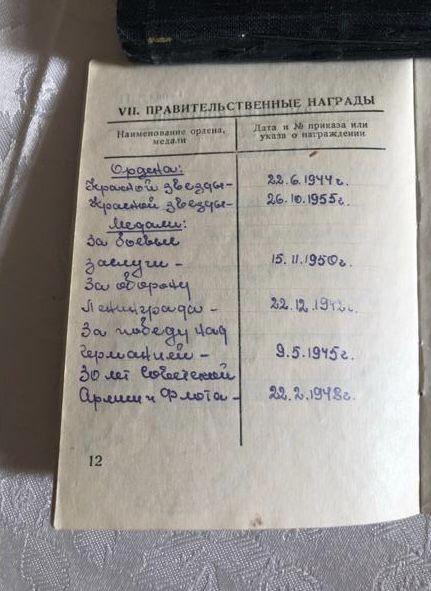 VII. ПРАВИТЕЛЬСТВЕННЫЕ НАГРАДЫ
Наименование ордена, медали
Дата и № приказа или указа о награждении
Ордена:
Красной звезды- 22.6.1944г.
Красной звезды- 26.10.1955г.
Медали:
За боевые
заслуги- 15.11.1950г.
За оборону
Ленинграда- 22.12.1942г.
За победу над
Германией- 9.5.1945г.
30 лет Советской
Армии и Флота- 22.2.1948г.
12